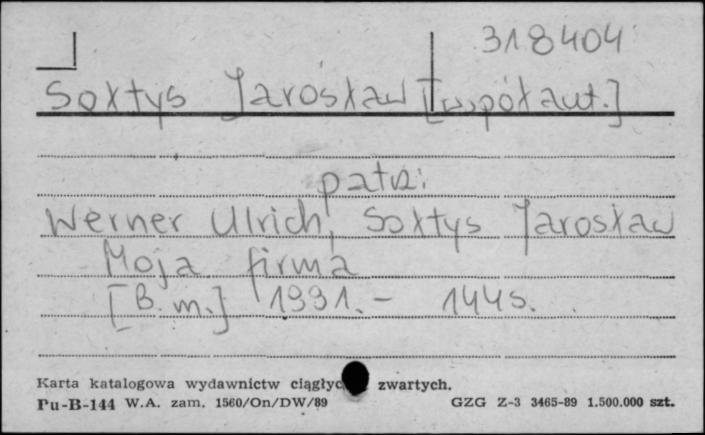 318404
Sołtys Jarosław [współaut.]
patrz:
Werner Ulrich, Sołtys Jarosław
Moja firma
[B.m.] 1991. – 144s.
Karta katalogowa wydawnictw zwartych.
Pu-B-144 W.A. zam. 1560/On/DW/89 GZG Z-3 3465-89 1.500.000 szt.